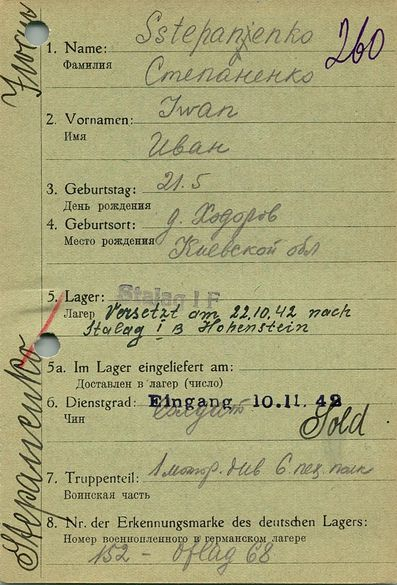 Sstepanjenko
260
1. Name:
Фамилия Степаненко
Iwan
2. Vornamen:
Имя Иван
3. Geburtstag: 21.5
День рождения
4. Geburtsort: д. Ходоров
Место рождения Киевской обл
5. Lager: Stalag I F
Лагер Versetzt am 22.10.42 nach
Stalag I B Hohenstein
5a. Im Lager eingeliefert am:
Доставлен в лагер (число)
6. Dienstgrad: Eingang 10.11.42
Чин солдат Sold
7. Truppenteil: 1 мотор. див 6 пех полк
Воинская часть
8. Nr. der Erkennungsmarke des deutschen Lagers:
Номер военнопленного в германском лагере
152 - Oflag 68